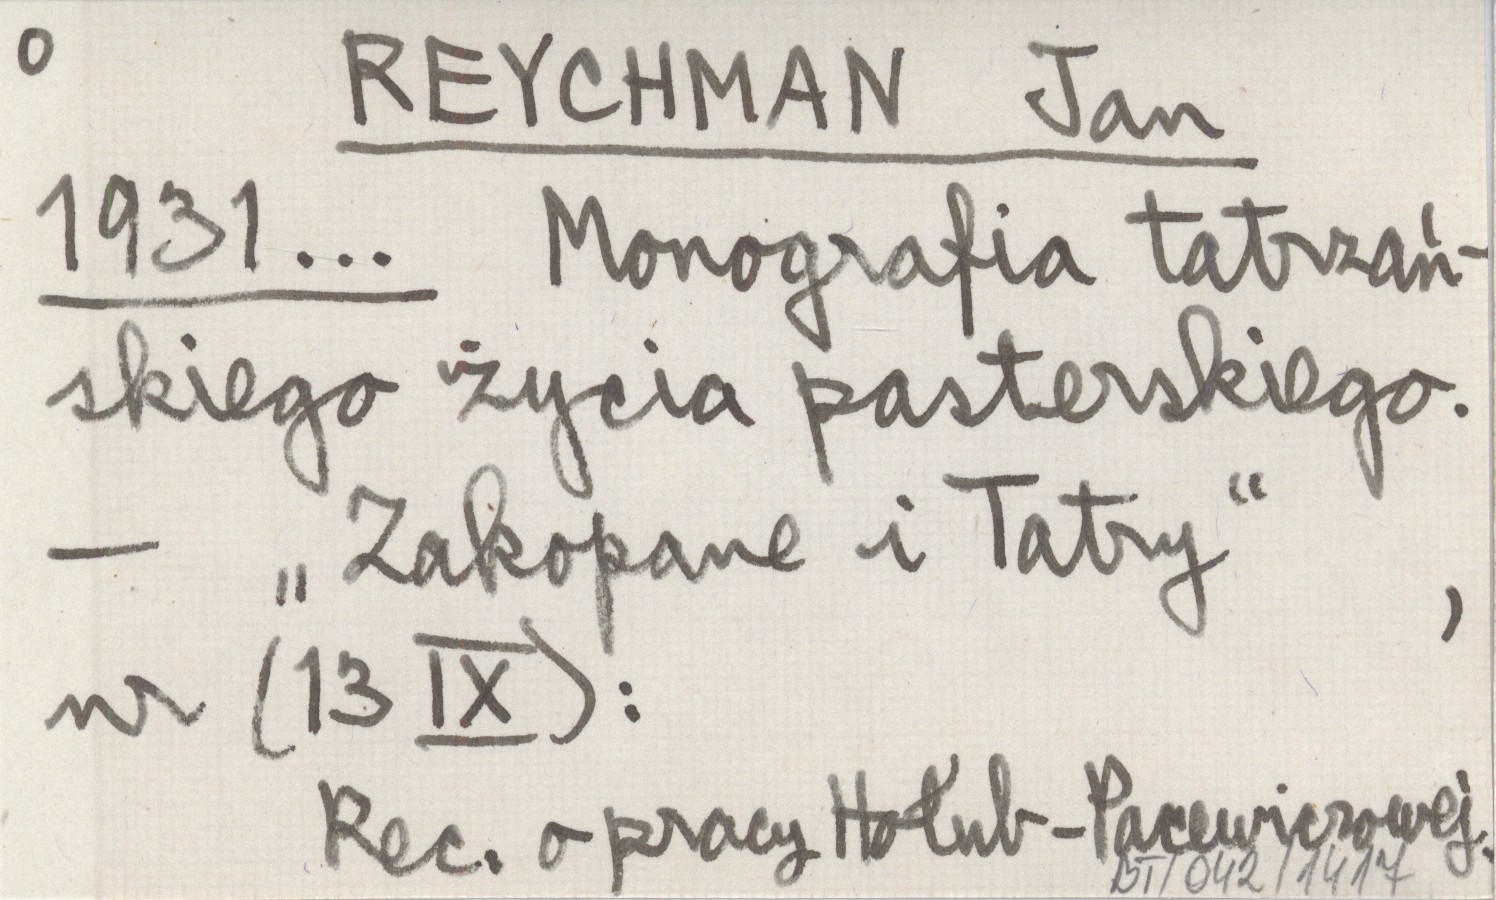 o REYCHMAN Jan
1931... Monografia tatrzań-
skiego życia pasterskiego.
— „Zakopane i Tatry“ ,
nr (13 IX):
Rec. o pracy Hołub-Pacewiczowej.
BT/042/1417